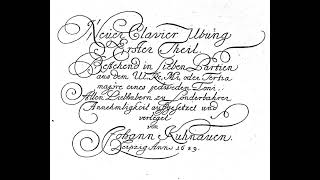 Neuer Clavier Ubung
Erster Theil
Bestehend in Sieben Partien
aus dem Ut, Re, Mi, oder Tertia
majore eines jedweden Toni,
Allen Liebhabern zu sonderbahrer
Annehmligkeit aufgesetzet und
verleget
von
Johann Kuhnauen.
Leipzig Anno 1689.